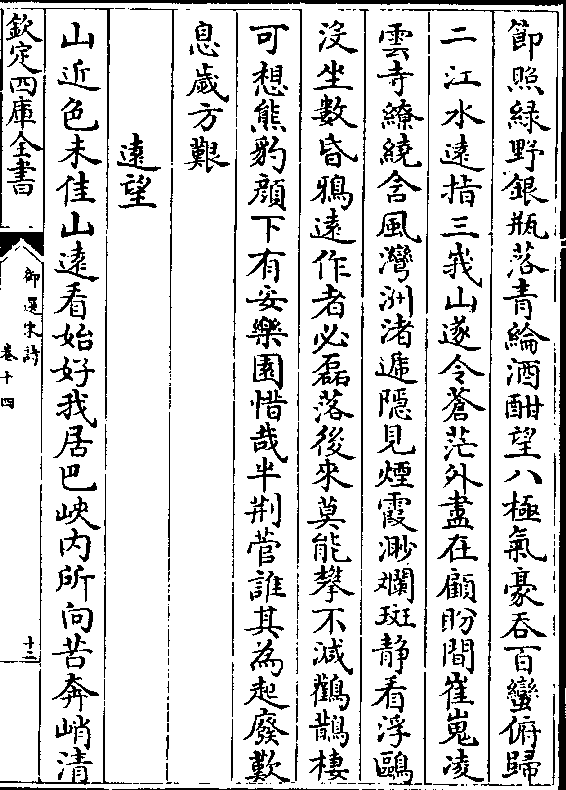 節照緑野銀瓶落青綸酒酣望八極氣豪吞百蠻俯歸
二江水遠指三峩山遂令蒼茫外盡在顧盼間崔嵬凌
雲寺繚繞含風灣洲渚遞隱見煙霞渺斕斑静看浮鷗
沒坐數昏鴉遠作者必磊落後來莫能攀不減鸛鵲棲
可想熊豹顔下有安樂園惜哉半荆菅誰其為起廢歎
息歲方艱
遠望
山近色未佳山遠看始好我居巴峽内所向苦奔峭清
欽定四庫全書
御選宋詩
卷十四
十二